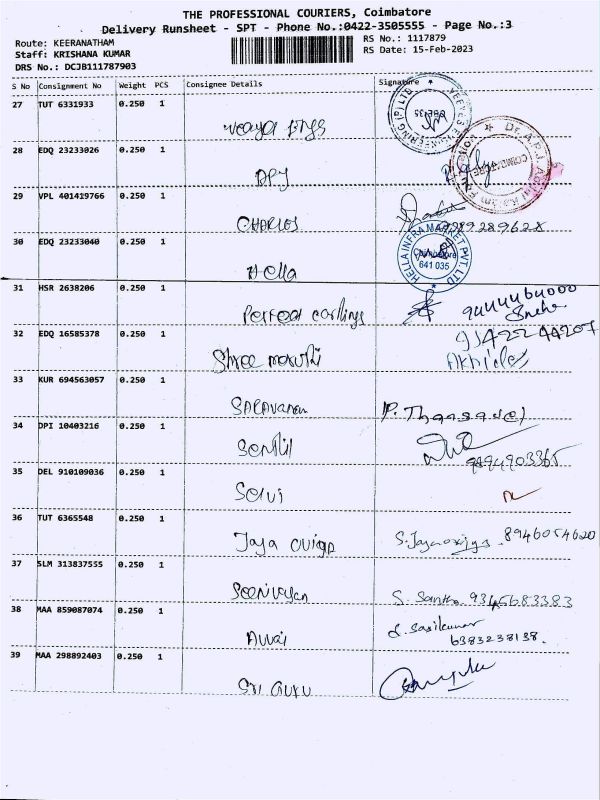 THE PROFESSIONAL COURIERS, Coimbatore
Delivery Runsheet - SPT - Phone No.:0422-3505555 - Page No.:3
Route: KEERANATHAM
RS No.: 1117879
Staff: KRISHANA KUMAR
RS Date: 15-Feb-2023
DRS No.: DCJB111787903
S No Consignment No Weight PCS Consignee Details Signature
27 TUT 6331933 0.250 1
28 EDQ 23233026 0.250 1
APJ
29 VPL 401419766 0.250 1
CHARLES
30 EDQ 23233040 0.250 1
Hella
HELLA INFRA MARKET PVT. LTD
Coimbatore
641 035
31 HSR 2638206 0.250 1
Perfect 9444464000
Sneha
32 EDQ 16585378 0.250 1
Shree
33 KUR 694563057 0.250 1
Saravanan P. Thangavel
34 DPI 10403216 0.250 1
Senthil 9894903365
35 DEL 910109036 0.250 1
Selvi
36 TUT 6365548 0.250 1
Jaya 8946054620
37 SLM 313837555 0.250 1
Seenivasan S. Santh 9345683383
38 MAA 859087074 0.250 1
Avvai S. Sasikumar
6383238138.
39 MAA 298892403 0.250 1
Sri Guru